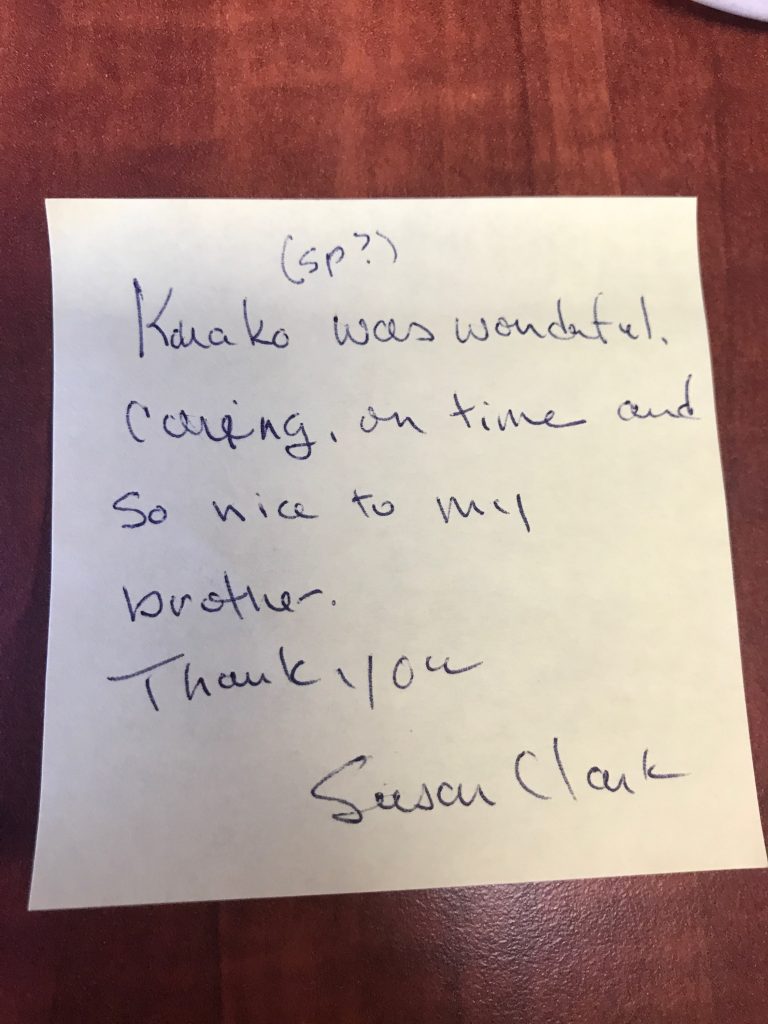 (sp?)
was wonderful.
caring, on time and
so nice to my
brother.
Thank you
Susan Clark